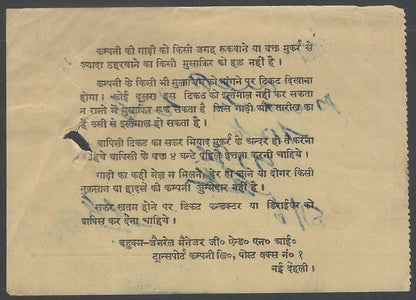 कम्पनी की गाड़ी को किसी जगह रूकवाने या वक्त मुकर्र से
ज़्यादा ठहरवाने का किसी मुसाफिर को हक़ नहीं है ।
कम्पनी के किसी भी मुलाज़िम को मांगने पर टिकट दिखाना
होगा । कोई दूसरा इस टिकट को इस्तेमाल नहीं कर सकता
न रास्ते में मुसाफिर रूक सकता है जिस गाड़ी और तारीख का
है उसी से इस्तेमाल हो सकता है ।
वापिसी टिकट का सफर मियाद मुकर्र के अन्दर ही ते करना
चाहिये वापिसी के वक्त ४ घन्टे पहिले इत्तला करनी चाहिये ।
गाड़ी का कहीं मेल न मिलना, देर हो जाने या दीगर किसी
नुक़सान या हादसे की कम्पनी जुम्मेदार नहीं है ।
सफर खतम होने पर टिकट कन्डक्टर या डिराईवर को
वापिस कर देना चाहिये ।
बहुक्म—जैनरेल मैनेजर जी० ऐन्ड० एन० आई०
ट्रान्सपोर्ट कम्पनी लि०, पोस्ट वक्स नं० १
नई देहली ।